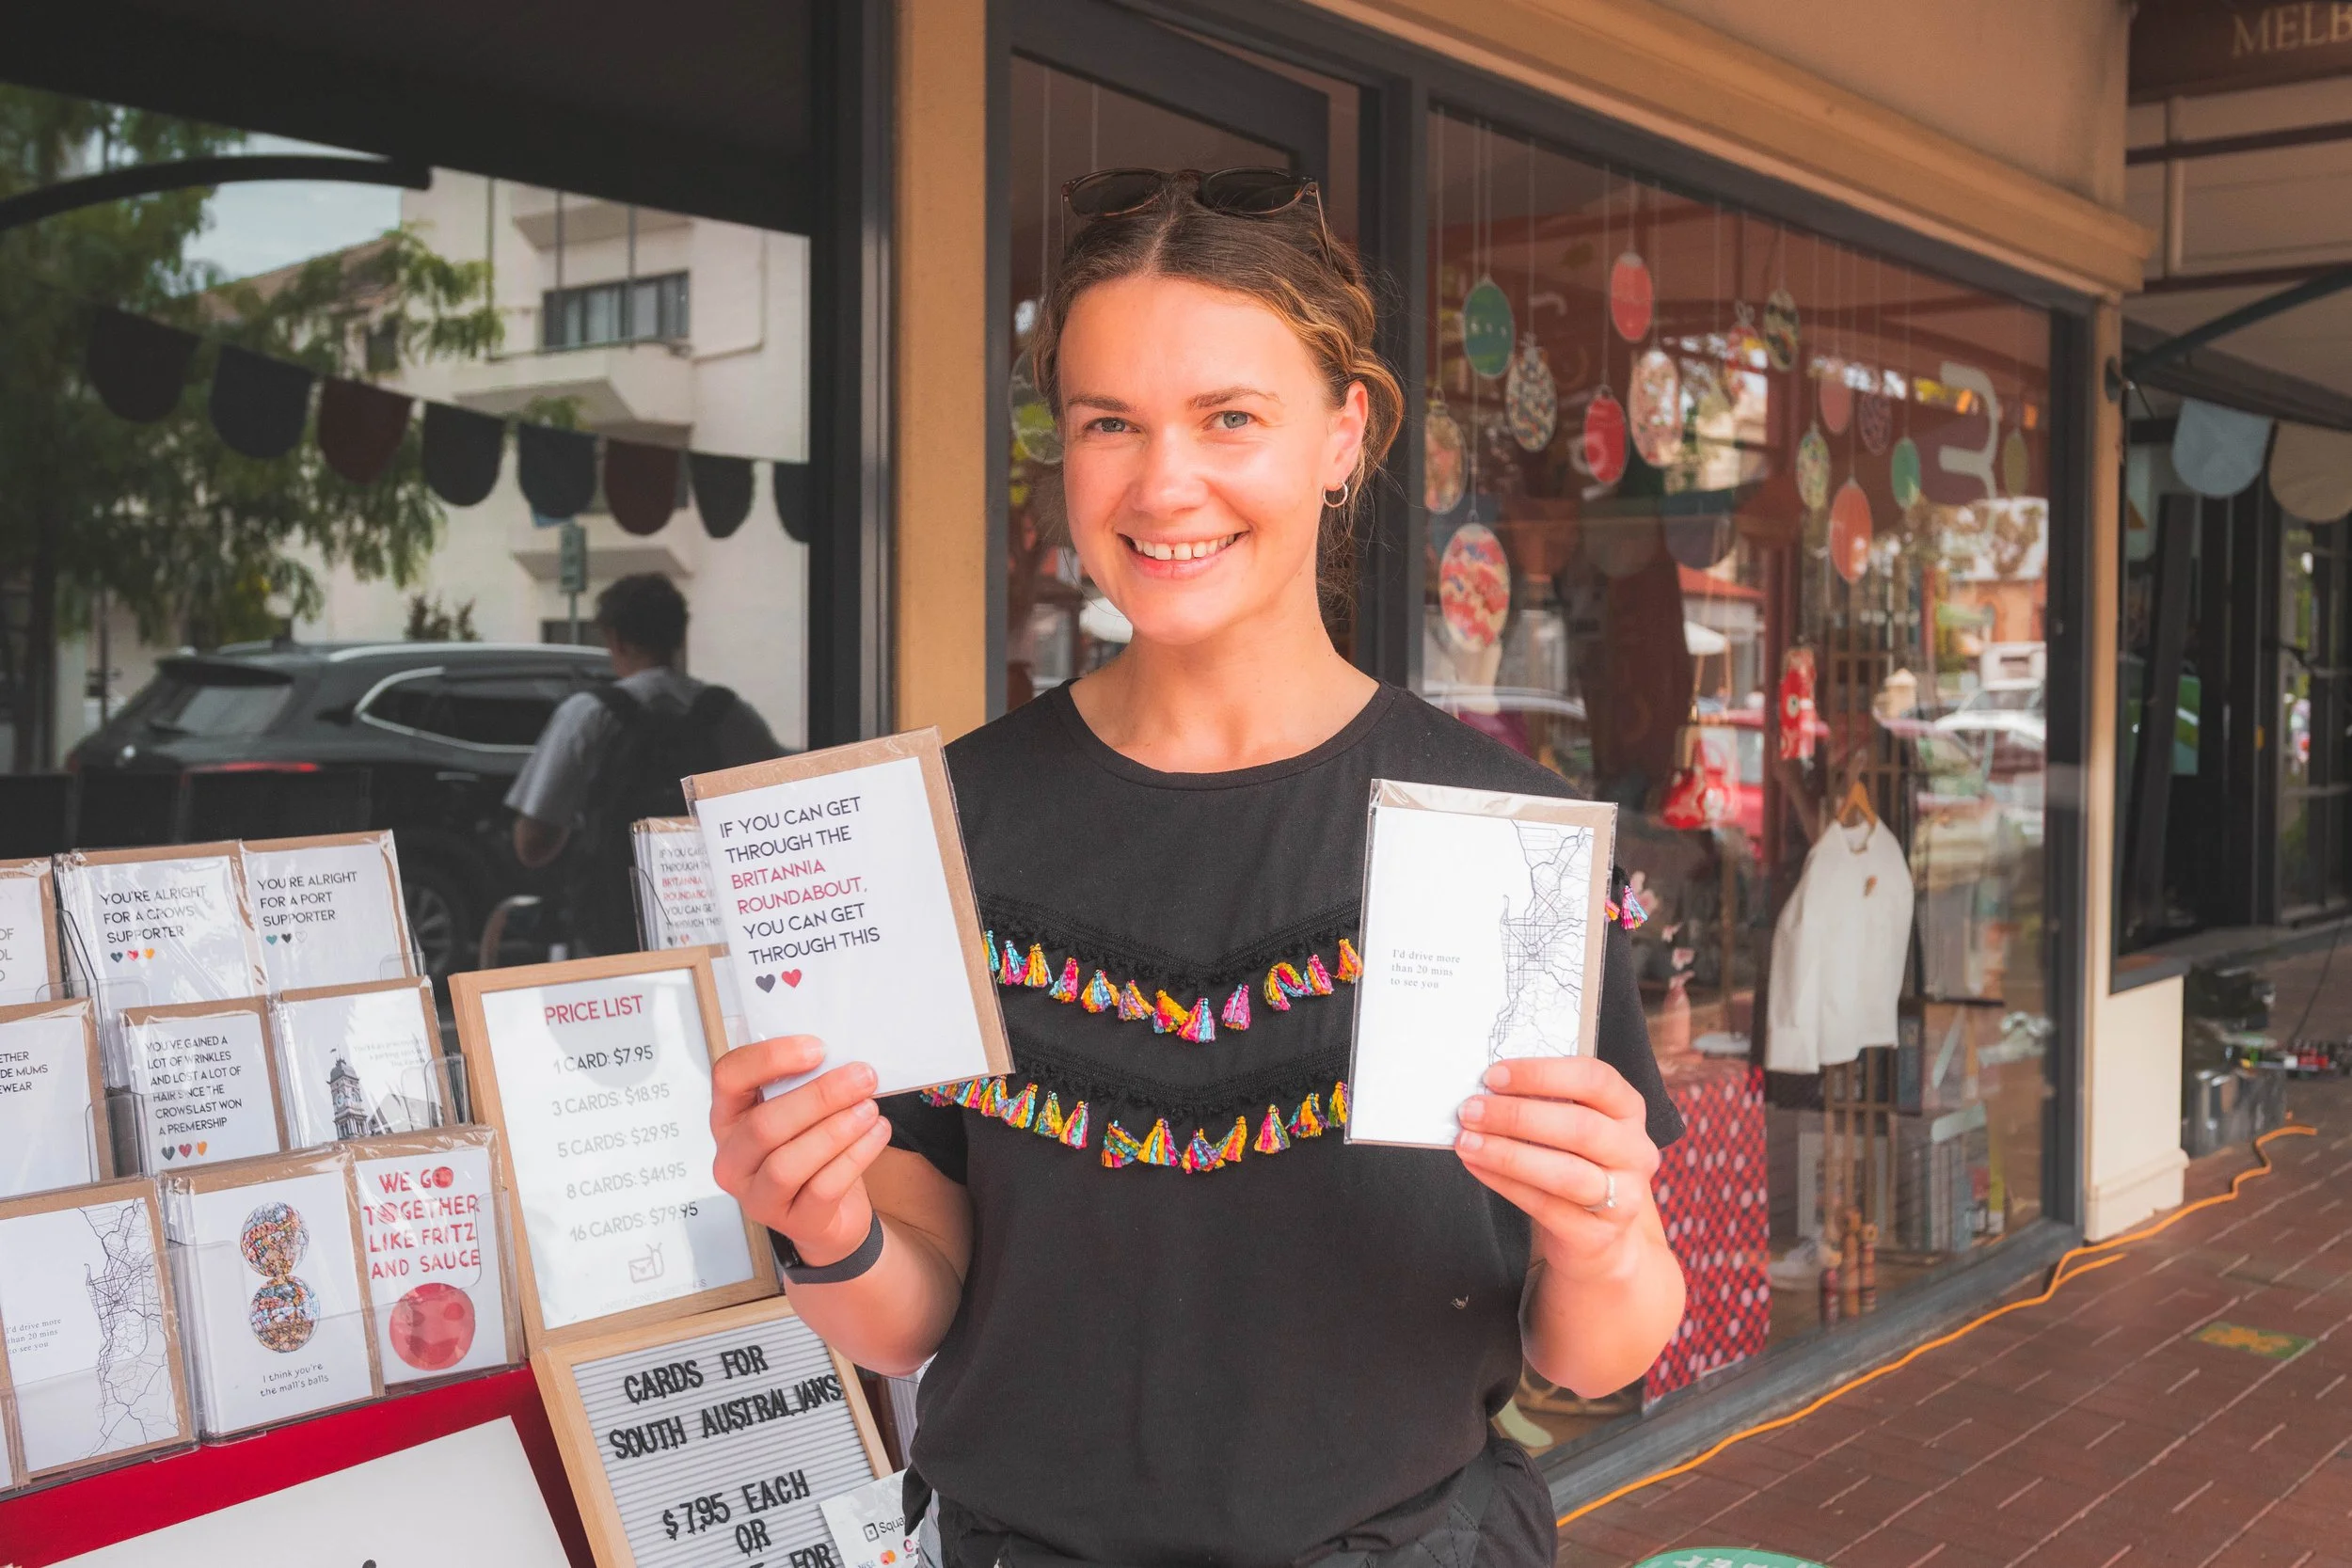 MELB
IF YOU CAN GET
THROUGH THE
BRITANNIA
ROUNDABOUT,
YOU CAN GET
THROUGH THIS
I'd drive more
than 20 mins
to see you
YOU'RE ALRIGHT
FOR A CROWS
SUPPORTER
YOU'RE ALRIGHT
FOR A PORT
SUPPORTER
THROUGH
BRITANNIA
YOU CAN GET
THROUGH THIS
OF
OL
ETHER
DE MUMS
EWEAR
YOU'VE GAINED A
LOT OF WRINKLES
AND LOST A LOT OF
HAIR SINCE THE
CROWS LAST WON
A PREMIERSHIP
I'd drive more
than 20 mins
to see you
I think you're
the mall's balls
WE GO
TOGETHER
LIKE FRITZ
AND SAUCE
PRICE LIST
1 CARD: $7.95
3 CARDS: $18.95
5 CARDS: $29.95
8 CARDS: $41.95
16 CARDS: $79.95
CARDS FOR
SOUTH AUSTRALIANS
$7.95 EACH
OR
FOR
Squa